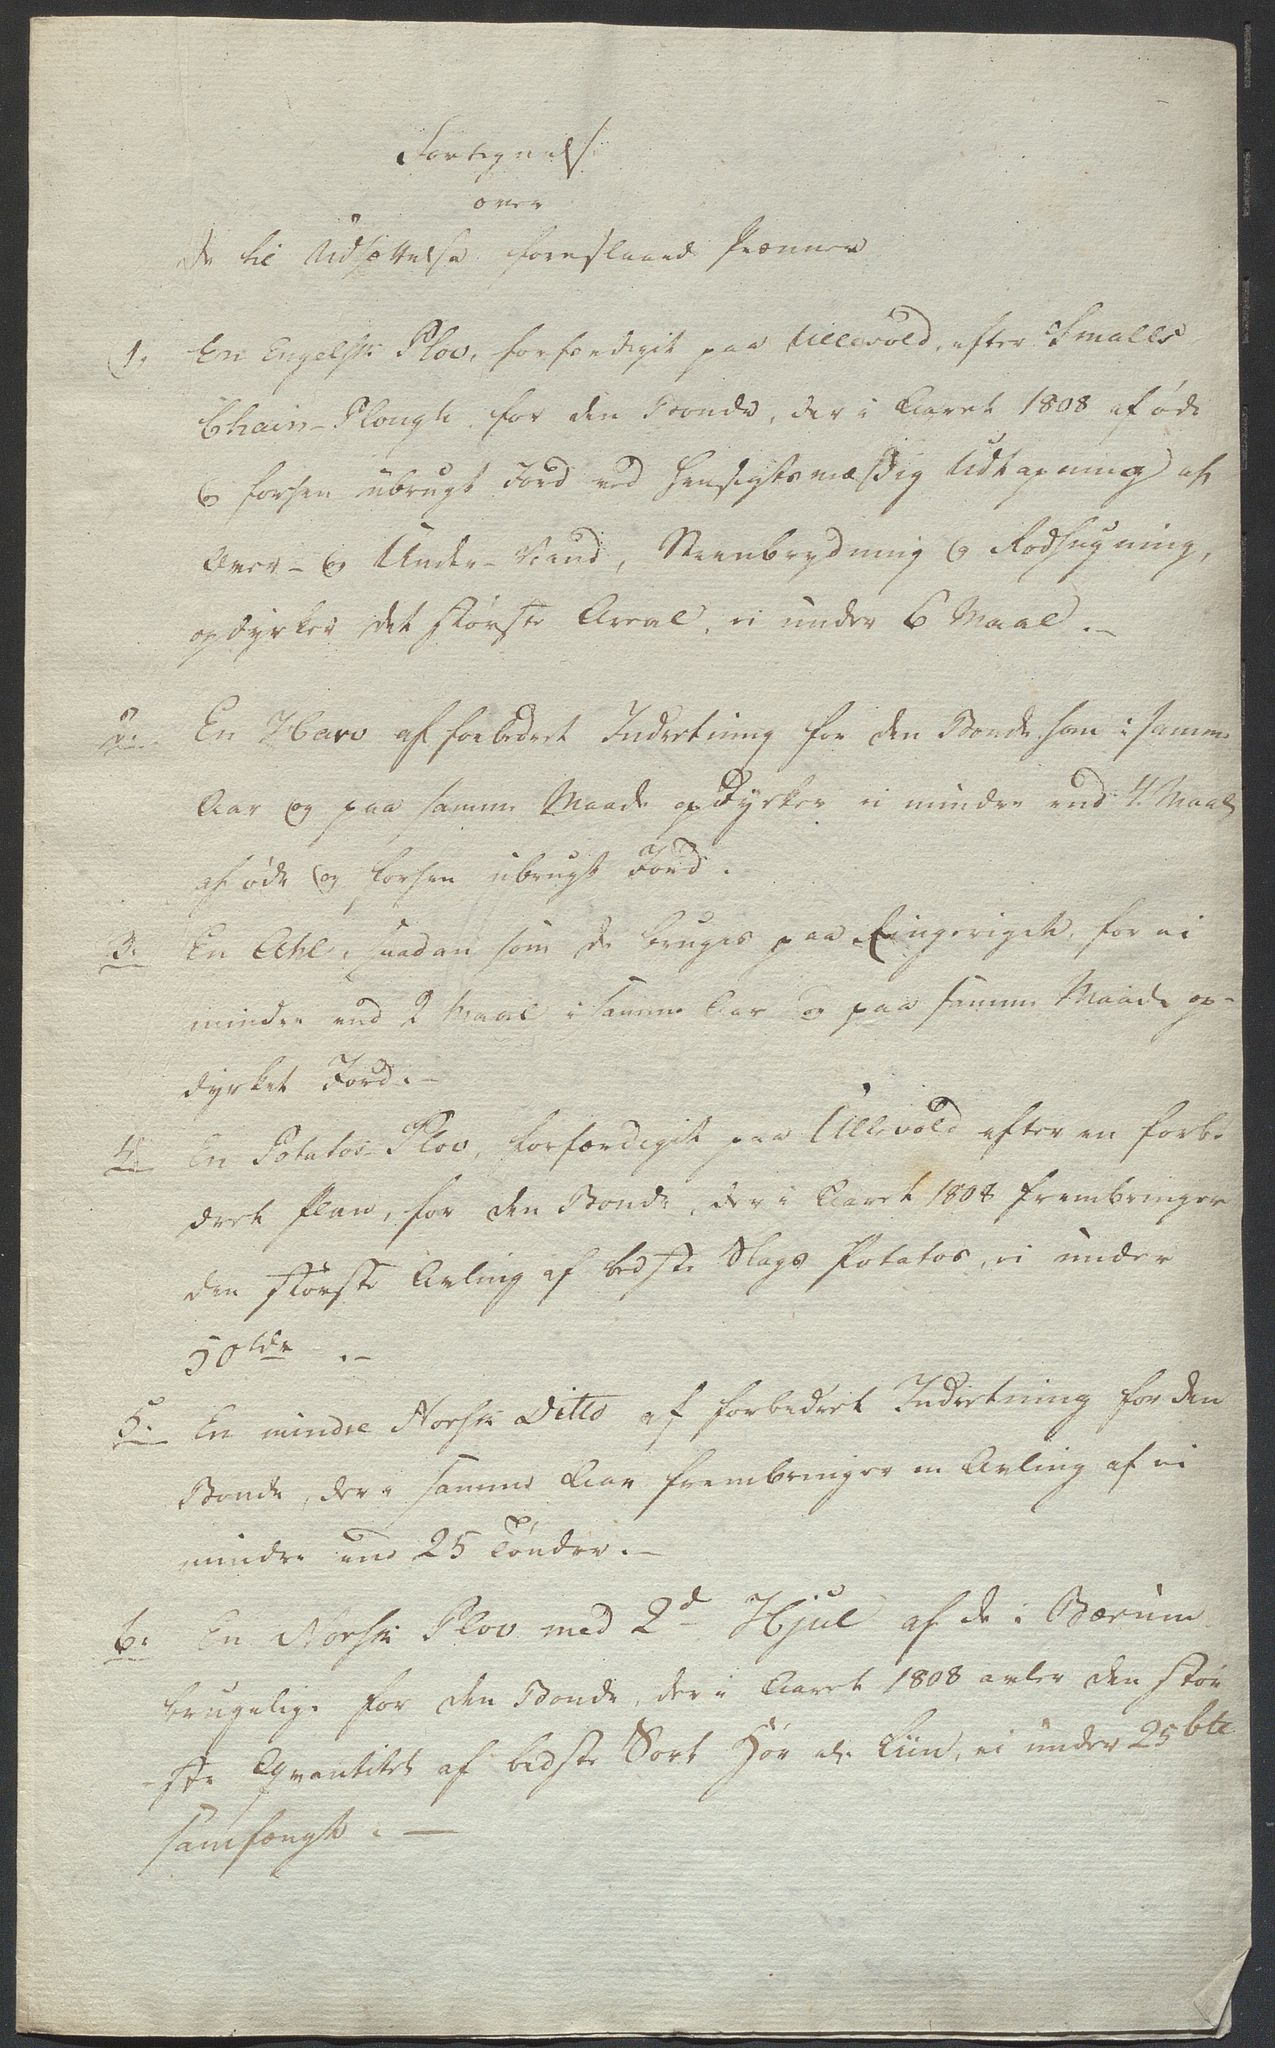 Fortegnelse
over
de til Udsættelse foreslaaede Præmier
1. En Engelsk Plov, forfærdiget paa Ullevold, efter Smalls
Chain-Plough for den Bonde, der i Aaret 1808 af øde
og forhen ubrugt Jord ved hensigtsmæssig Udtapning af
Over- og Under-Vand, Steenbrydning og Rodhugning,
opdyrker det største Areal, ei under 6 Maal.-
2. En Harv af forbedret Indretning for den Bonde som i samme
Aar og paa samme Maade opdyrker ei mindre end 4 Maal
af øde og forhen ubrugt Jord.
3. En Ahl, saadan som de bruges paa Ringeriget, for ei
mindre end 2 Maal i samme Aar og paa samme Maade op-
dyrket Jord.-
4. En Potatos-Plov, forfærdiget paa Ullevold efter en forbe
dret Plan, for den Bonde, der i Aaret 1808 frembringer
den største Avling af bedste Slags Potatos, ei under
50 tdr .-
5. En mindre Norsk Ditto af forbedret Indretning for den
Bonde, der i samme Aar frembringer en Avling af ei
mindre end 25 Tønder.-
6. En Norsk Plov med 2de Hjul af de i Bærum
brugelige for den Bonde, der i Aaret 1808 avler den stør
ste Qvantitet af bedste Sort Hør el. Liin, ei under 25